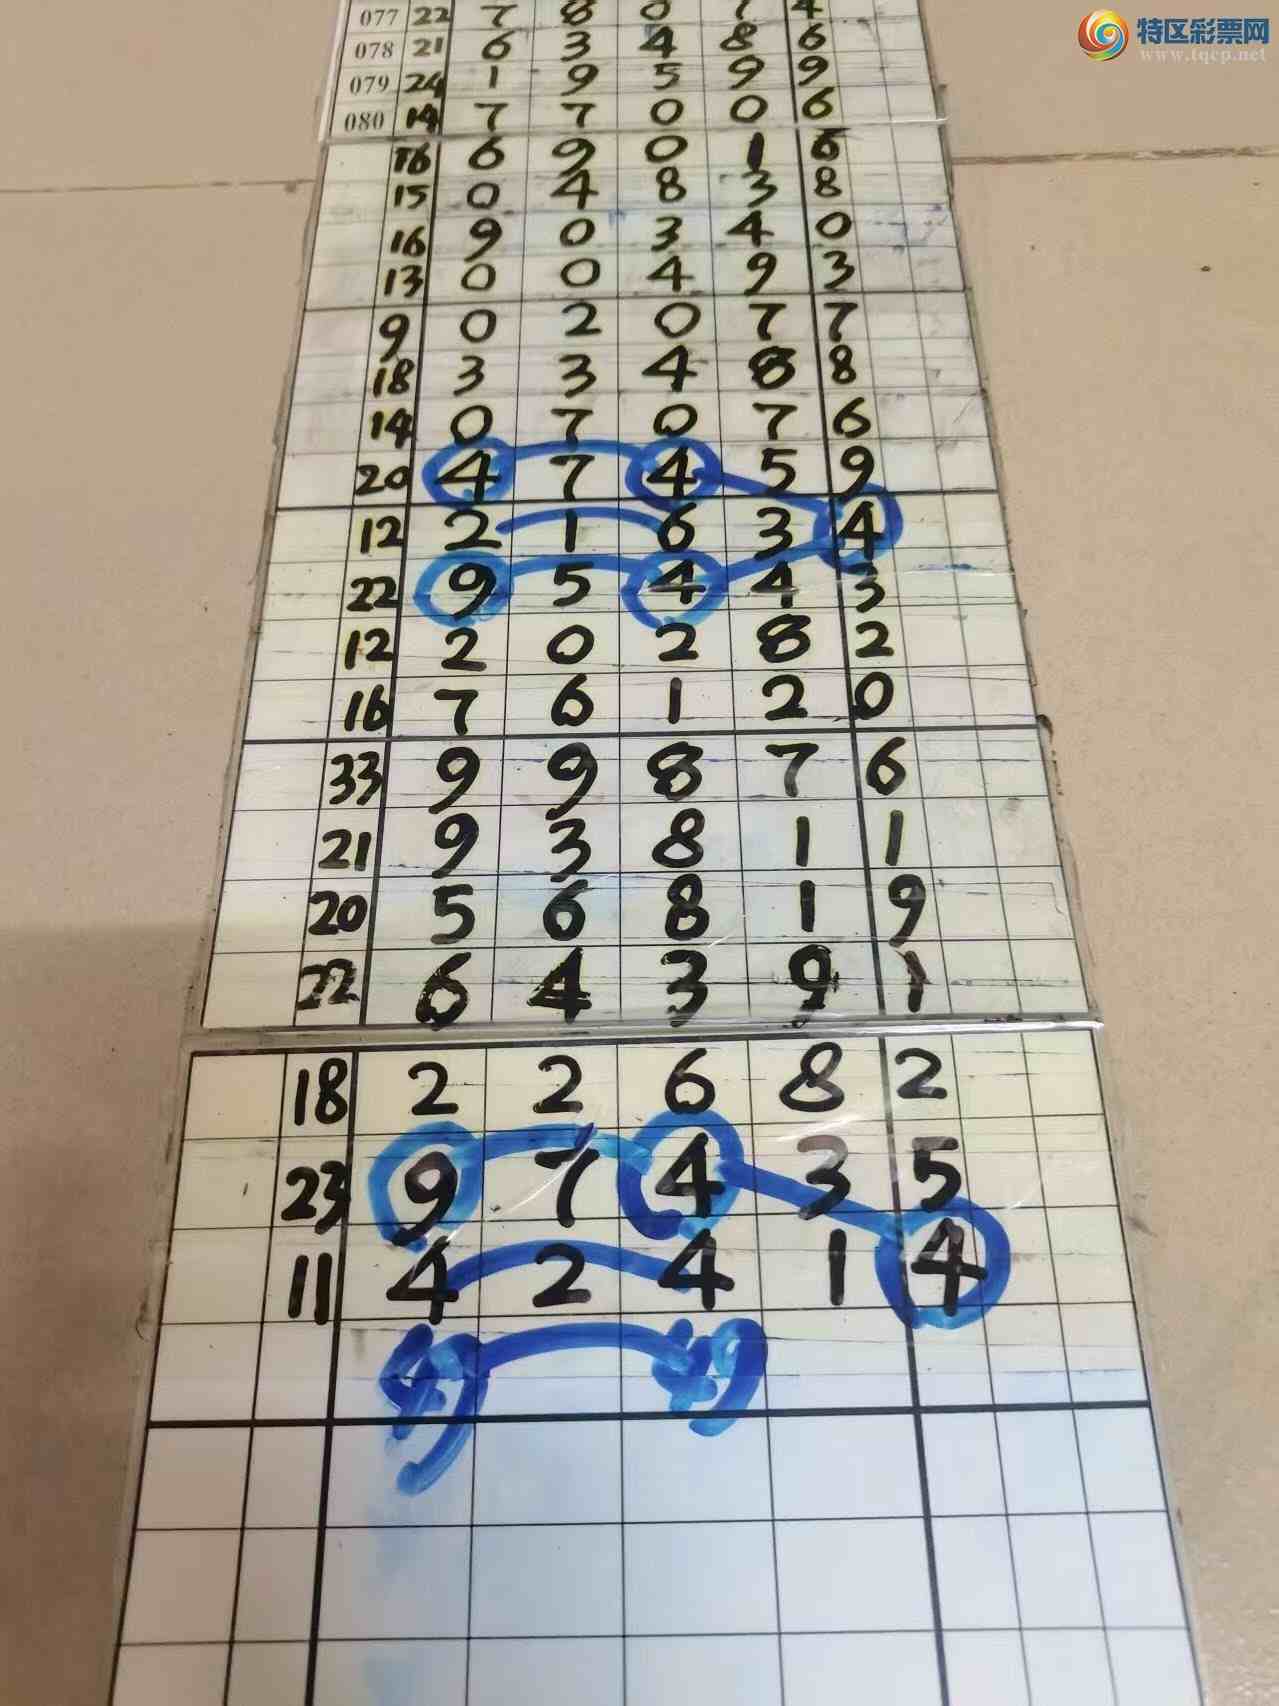 特区彩票网
www.tqcp.net
077 22 7 8 0 7 4
078 21 6 3 4 8 6
079 24 1 9 5 9 9
080 14 7 7 0 0 6
16 6 9 0 1 6
15 0 4 8 3 8
16 9 0 3 4 0
13 0 0 4 9 3
9 0 2 0 7 7
18 3 3 4 8 8
14 0 7 0 7 6
20 4 7 4 5 9
12 2 1 6 3 4
22 9 5 4 4 3
12 2 0 2 8 2
16 7 6 1 2 0
33 9 9 8 7 6
21 9 3 8 1 1
20 5 6 8 1 9
22 6 4 3 9 1
18 2 2 6 8 2
23 9 7 4 3 5
11 4 2 4 1 4
49 49